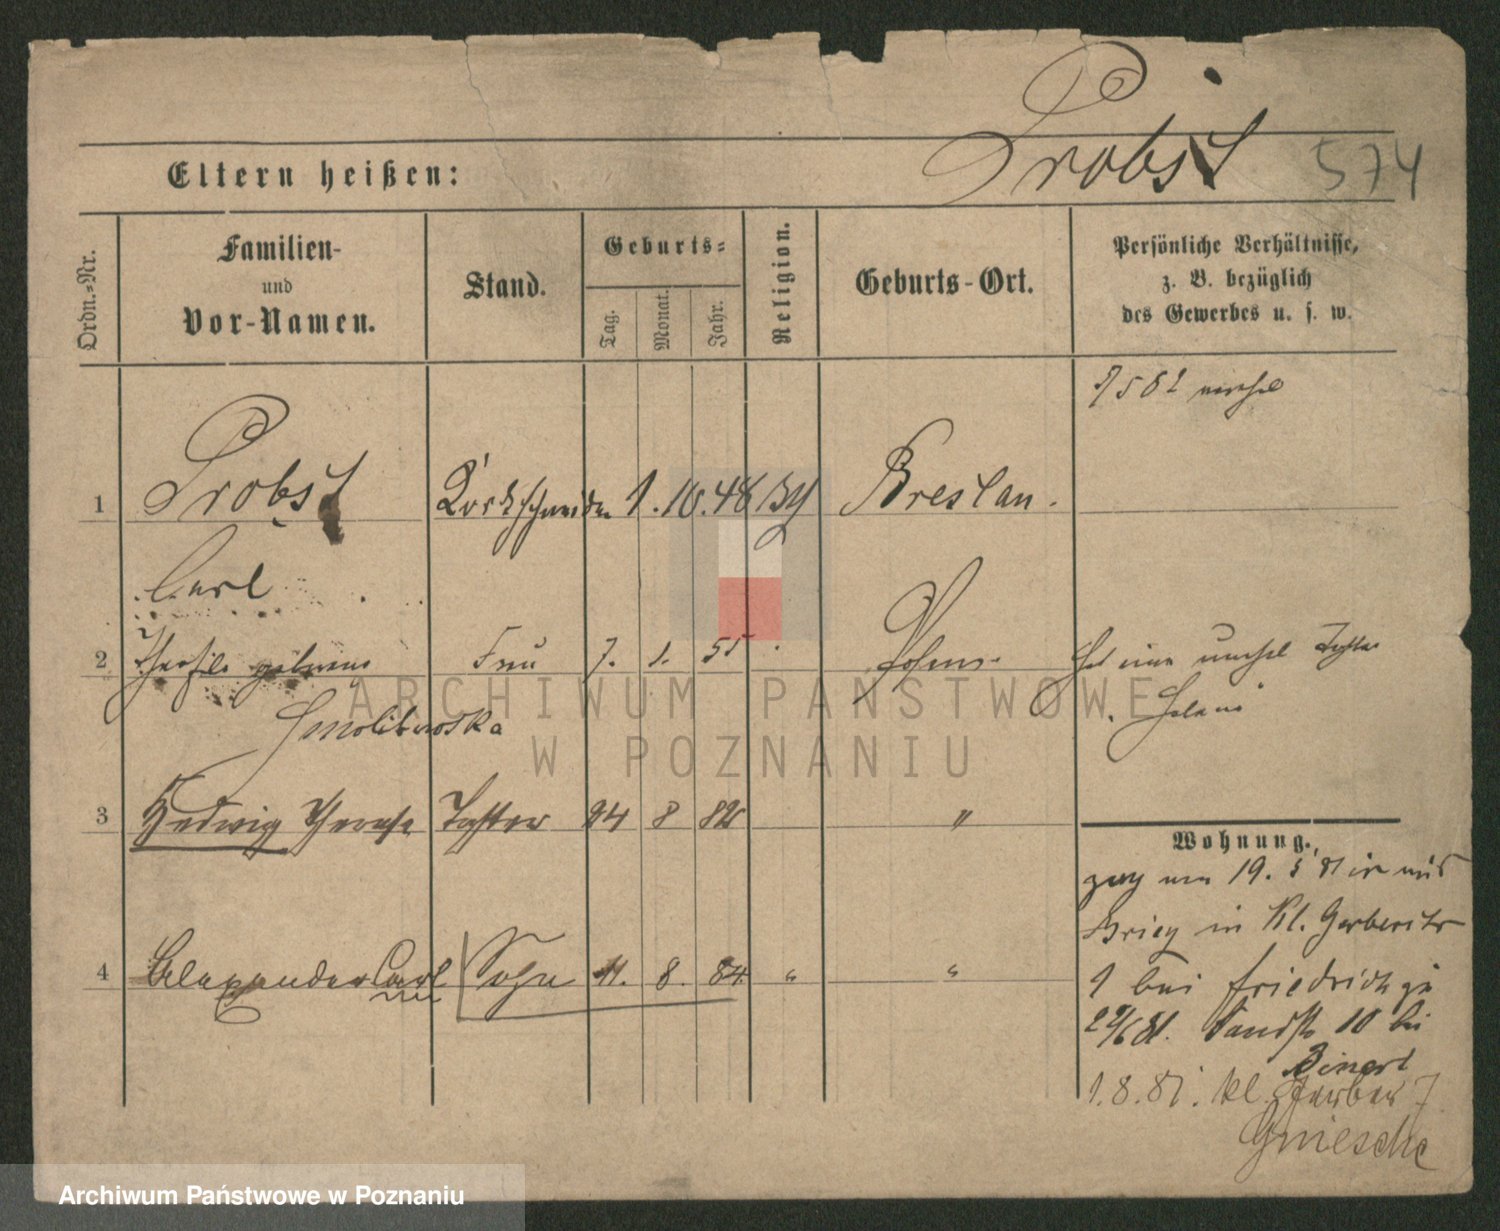 Probst 574
Eltern heißen:
Ordn.-Nr.
Familien-
und
Vor-Namen.
Stand.
Geburts-
Tag.
Monat.
Jahr.
Religion.
Geburts-Ort.
Persönliche Verhältnisse,
z. B. bezüglich
des Gewerbes u. s. w.
1 Probst Korkschneider 1. 10. 48 Breslau.
Carl
2 geborene Frau 7. 1. 55 Posen
Smolibowska
hat eine unehel Tochter
Helene
3 Hedwig Therese Tochter 24 8 82 "
4 Alexander Carl Sohn 11. 8. 84 " "
Wohnung.
zog am 19. 5 81 in aus
Brieg in Kl. Gerberstr
1 bei Friedrich zu
29/6 81. Sandstr 10 bei
Binert
1. 8. 81. kl. Gerber 7
Gniesche
ARCHIWUM PAŃSTWOWE
W POZNANIU
Archiwum Państwowe w Poznaniu